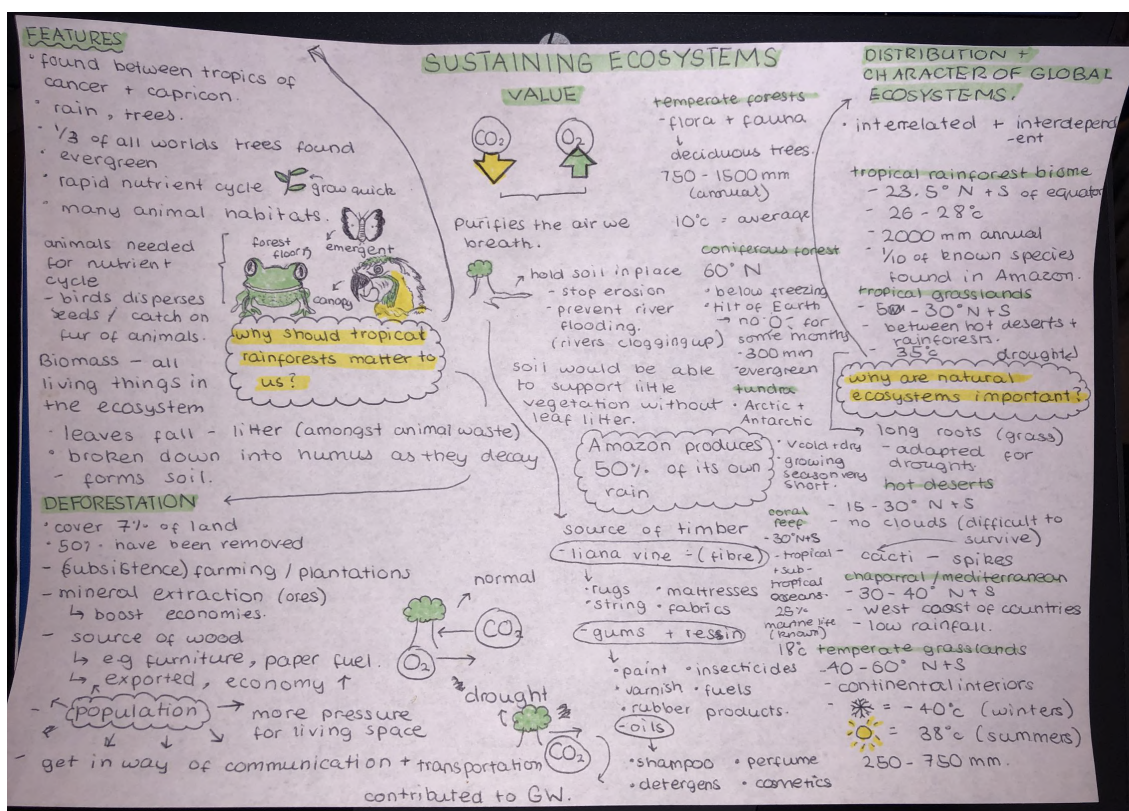 SUSTAINING ECOSYSTEMS
FEATURES
• found between tropics of
cancer + capricon.
• rain, trees.
• 1/3 of all worlds trees found
• evergreen
• rapid nutrient cycle
grow quick
• many animal habitats.
animals needed
for nutrient
cycle
- birds disperses
seeds / catch on
fur of animals.
forest
floor
emergent
canopy
why should tropical
rainforests matter to
us?
Biomass - all
living things in
the ecosystem
• leaves fall - litter (amongst animal waste)
• broken down into humus as they decay
- forms soil.
DEFORESTATION
• cover 7% of land
• 50% have been removed
- (subsistence) farming / plantations
- mineral extraction (ores)
↳ boost economies.
- source of wood
↳ e.g furniture, paper fuel.
↳ exported, economy ↑
- population → more pressure
for living space
- get in way of communication + transportation
contributed to GW.
normal
CO2
O2
drought
CO2
VALUE
CO2
O2
Purifies the air we
breath.
→ hold soil in place
- stop erosion
- prevent river
flooding.
(rivers clogging up)
soil would be able
to support little
vegetation without
leaf litter.
Amazon produces
50% of its own
rain
source of timber
- liana vine - (fibre)
• rugs • maltresses
• string • fabrics
- gums + ressin
• paint • insecticides
• varnish • fuels
• rubber products.
- oils
• shampoo • perfume
• detergens • cosmetics
temperate forests
- flora + fauna
↓
deciduous trees.
750 - 1500 mm
(annual)
10°c = average
coniferous forest
60° N
• below freezing
• tilt of Earth
→ no ☼ for
some months
- 300 mm
- evergreen
tundra
• Arctic +
Antarctic
• v cold + dry
• growing
season very
short.
coral
reef
- 30° N+S
- tropical
+ sub-
tropical
oceans.
25%
marine life
(known)
18°c
DISTRIBUTION +
CHARACTER OF GLOBAL
ECOSYSTEMS.
• interrelated + interdepend
-ent
tropical rainforest biome
- 23.5° N + S of equator
- 26 - 28°c
- 2000 mm annual
- 1/10 of known species
found in Amazon.
tropical grasslands
- 5 - 30° N+S
- between hot deserts +
rainforests.
- 35°c droughts
why are natural
ecosystems important?
long roots (grass)
- adapted for
droughts.
hot deserts
- 15 - 30° N+S
- no clouds (difficult to
survive)
- cacti - spikes
chaparral / mediterranean
- 30 - 40° N+S
- west coast of countries
- low rainfall.
temperate grasslands
- 40 - 60° N+S
- continental interiors
- = - 40°c (winters)
= 38°c (summers)
250 - 750 mm.